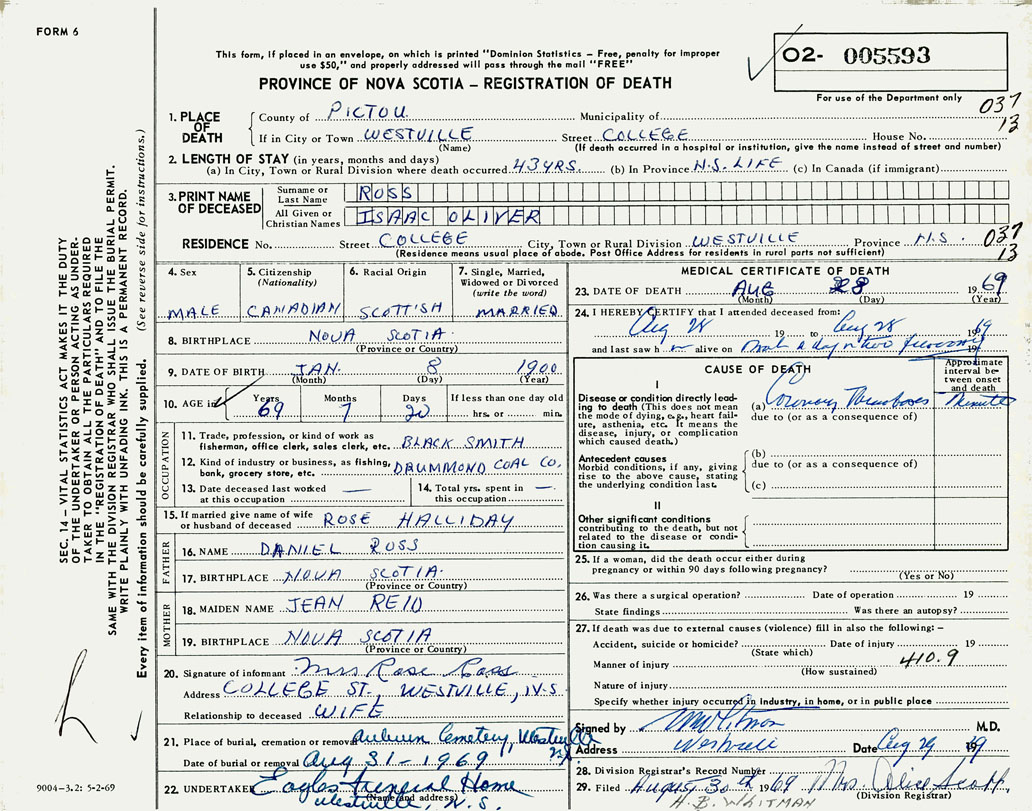 FORM 6
This form, if placed in an envelope, on which is printed "Dominion Statistics – Free, penalty for improper
use $50," and properly addressed will pass through the mail "FREE"
PROVINCE OF NOVA SCOTIA – REGISTRATION OF DEATH
02- 005593
For use of the Department only
037
13
1. PLACE OF DEATH
County of PICTOU Municipality of
If in City or Town WESTVILLE Street COLLEGE House No.
(Name) (If death occurred in a hospital or institution, give the name instead of street and number)
2. LENGTH OF STAY (in years, months and days)
(a) In City, Town or Rural Division where death occurred 43 YRS. (b) In Province N.S. LIFE (c) In Canada (if immigrant)
3. PRINT NAME OF DECEASED
Surname or Last Name ROSS
All Given or Christian Names ISAAC OLIVER
RESIDENCE No. Street COLLEGE City, Town or Rural Division WESTVILLE Province N.S. 037
(Residence means usual place of abode. Post Office Address for residents in rural parts not sufficient) 13
4. Sex MALE
5. Citizenship (Nationality) CANADIAN
6. Racial Origin SCOTTISH
7. Single, Married, Widowed or Divorced (write the word) MARRIED
8. BIRTHPLACE NOVA SCOTIA
(Province or Country)
9. DATE OF BIRTH JAN. 8 1900
(Month) (Day) (Year)
10. AGE in Years 69 Months 7 Days 20 If less than one day old hrs. or min.
OCCUPATION
11. Trade, profession, or kind of work as
fisherman, office clerk, sales clerk, etc. BLACK SMITH
12. Kind of industry or business, as fishing,
bank, grocery store, etc. DRUMMOND COAL CO.
13. Date deceased last worked at this occupation —
14. Total yrs. spent in this occupation —
15. If married give name of wife
or husband of deceased ROSE HALLIDAY
FATHER
16. NAME DANIEL ROSS
17. BIRTHPLACE NOVA SCOTIA
(Province or Country)
MOTHER
18. MAIDEN NAME JEAN REID
19. BIRTHPLACE NOVA SCOTIA
(Province or Country)
20. Signature of informant Mrs Rose Ross
Address COLLEGE ST., WESTVILLE, N.S
Relationship to deceased WIFE
21. Place of burial, cremation or removal Auburn Cemetery, Westville
Date of burial or removal Aug 31-1969
22. UNDERTAKER Eagles Funeral Home
(Name and address)
Westville, N.S.
MEDICAL CERTIFICATE OF DEATH
23. DATE OF DEATH AUG 28 1969
(Month) (Day) (Year)
24. I HEREBY CERTIFY that I attended deceased from:
Aug 28 19 to Aug 28 1969
and last saw h alive on a day or two 19
CAUSE OF DEATH
Approximate interval between onset and death
I
Disease or condition directly leading to death (This does not mean the mode of dying, e.g., heart failure, asthenia, etc. It means the disease, injury, or complication which caused death.)
(a) Coronary Thrombosis Minutes
due to (or as a consequence of)
Antecedent causes
Morbid conditions, if any, giving rise to the above cause, stating the underlying condition last.
(b)
due to (or as a consequence of)
(c)
II
Other significant conditions
contributing to the death, but not related to the disease or condition causing it.
25. If a woman, did the death occur either during
pregnancy or within 90 days following pregnancy?
(Yes or No)
26. Was there a surgical operation? Date of operation 19
State findings Was there an autopsy?
27. If death was due to external causes (violence) fill in also the following: –
Accident, suicide or homicide? Date of injury 19
(State which)
Manner of injury 410.9
(How sustained)
Nature of injury
Specify whether injury occurred in industry, in home, or in public place
Signed by M.D.
Address Westville Date Aug 29 19
28. Division Registrar's Record Number
29. Filed August 30th 1969 Mrs. Alice Scott
(Division Registrar)
H.B. WHITMAN
SEC. 14 – VITAL STATISTICS ACT MAKES IT THE DUTY
OF THE UNDERTAKER OR PERSON ACTING AS UNDER-
TAKER TO OBTAIN ALL THE PARTICULARS REQUIRED
IN THE "REGISTRATION OF DEATH" AND TO FILE THE
SAME WITH THE DIVISION REGISTRAR WHO SHALL ISSUE THE BURIAL PERMIT.
WRITE PLAINLY WITH UNFADING INK. THIS IS A PERMANENT RECORD.
Every item of information should be carefully supplied. (See reverse side for instructions.)
9004–3.2: 5-2-69